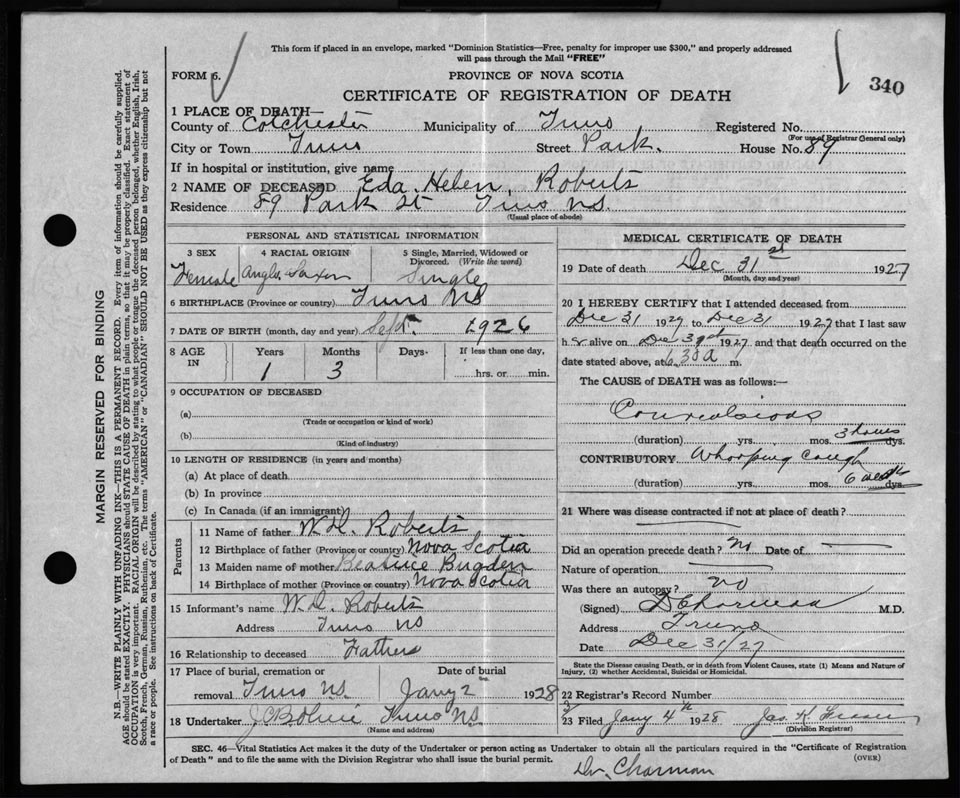 This form if placed in an envelope, marked "Dominion Statistics—Free, penalty for improper use $300," and properly addressed
will pass through the Mail "FREE"
FORM 6.
PROVINCE OF NOVA SCOTIA
340
CERTIFICATE OF REGISTRATION OF DEATH
1 PLACE OF DEATH—
County of Colchester Municipality of Truro Registered No.
(For use of Registrar General only)
City or Town Truro Street Park. House No. 89
If in hospital or institution, give name
2 NAME OF DECEASED Eda Helen Roberts
Residence 89 Park St Truro N.S.
(Usual place of abode)
PERSONAL AND STATISTICAL INFORMATION
3 SEX 4 RACIAL ORIGIN 5 Single, Married, Widowed or Divorced. (Write the word)
Female Anglo Saxon Single
6 BIRTHPLACE (Province or country) Truro NS
7 DATE OF BIRTH (month, day and year) Sept. 1926
8 AGE IN Years Months Days If less than one day,
1 3 hrs. or min.
9 OCCUPATION OF DECEASED
(a)
(Trade or occupation or kind of work)
(b)
(Kind of industry)
10 LENGTH OF RESIDENCE (in years and months)
(a) At place of death
(b) In province
(c) In Canada (if an immigrant)
Parents
11 Name of father W.D. Roberts
12 Birthplace of father (Province or country) Nova Scotia
13 Maiden name of mother Beatrice Bugden
14 Birthplace of mother (Province or country) Nova Scotia
15 Informant's name W.D. Roberts
Address Truro NS
16 Relationship to deceased Father
17 Place of burial, cremation or Date of burial
removal Truro NS. Jany 2 1928
18 Undertaker Truro NS
(Name and address)
MEDICAL CERTIFICATE OF DEATH
19 Date of death Dec 31st 1927
(Month, day and year)
20 I HEREBY CERTIFY that I attended deceased from
Dec 31 1927 to Dec 31 1927 that I last saw
h er alive on Dec 1927 and that death occurred on the
date stated above, at 6.30 a m.
The CAUSE of DEATH was as follows:—
Convulsions
(duration) yrs. mos. 3 hours dys.
CONTRIBUTORY Whooping Cough
(duration) yrs. mos. 6 weeks dys.
21 Where was disease contracted if not at place of death?
Did an operation precede death? no Date of
Nature of operation
Was there an autopsy? no
(Signed) D Charman M.D.
Address Truro
Date Dec 31/27
State the Disease causing Death, or in death from Violent Causes, state (1) Means and Nature of
Injury, (2) whether Accidental, Suicidal or Homicidal.
22 Registrar's Record Number
23 Filed Jany 4th 1928 Jas. K. Fraser
(Division Registrar)
SEC. 46—Vital Statistics Act makes it the duty of the Undertaker or person acting as Undertaker to obtain all the particulars required in the "Certificate of Registration
of Death" and to file the same with the Division Registrar who shall issue the burial permit.
(OVER)
Dr. Charman
MARGIN RESERVED FOR BINDING
N.B.—WRITE PLAINLY WITH UNFADING INK—THIS IS A PERMANENT RECORD. Every item of information should be carefully supplied.
AGE should be stated EXACTLY. PHYSICIANS should STATE CAUSE OF DEATH in plain terms, so that it may be properly classified. Exact statement of
OCCUPATION is very important. RACIAL ORIGIN will be described by stating to what people or tongue the deceased person belonged, whether English, Irish,
Scotch, French, German, Russian, Ruthenian, etc. The terms "AMERICAN" or "CANADIAN" SHOULD NOT BE USED as they express citizenship but not
a race or people. See instructions on back of Certificate.